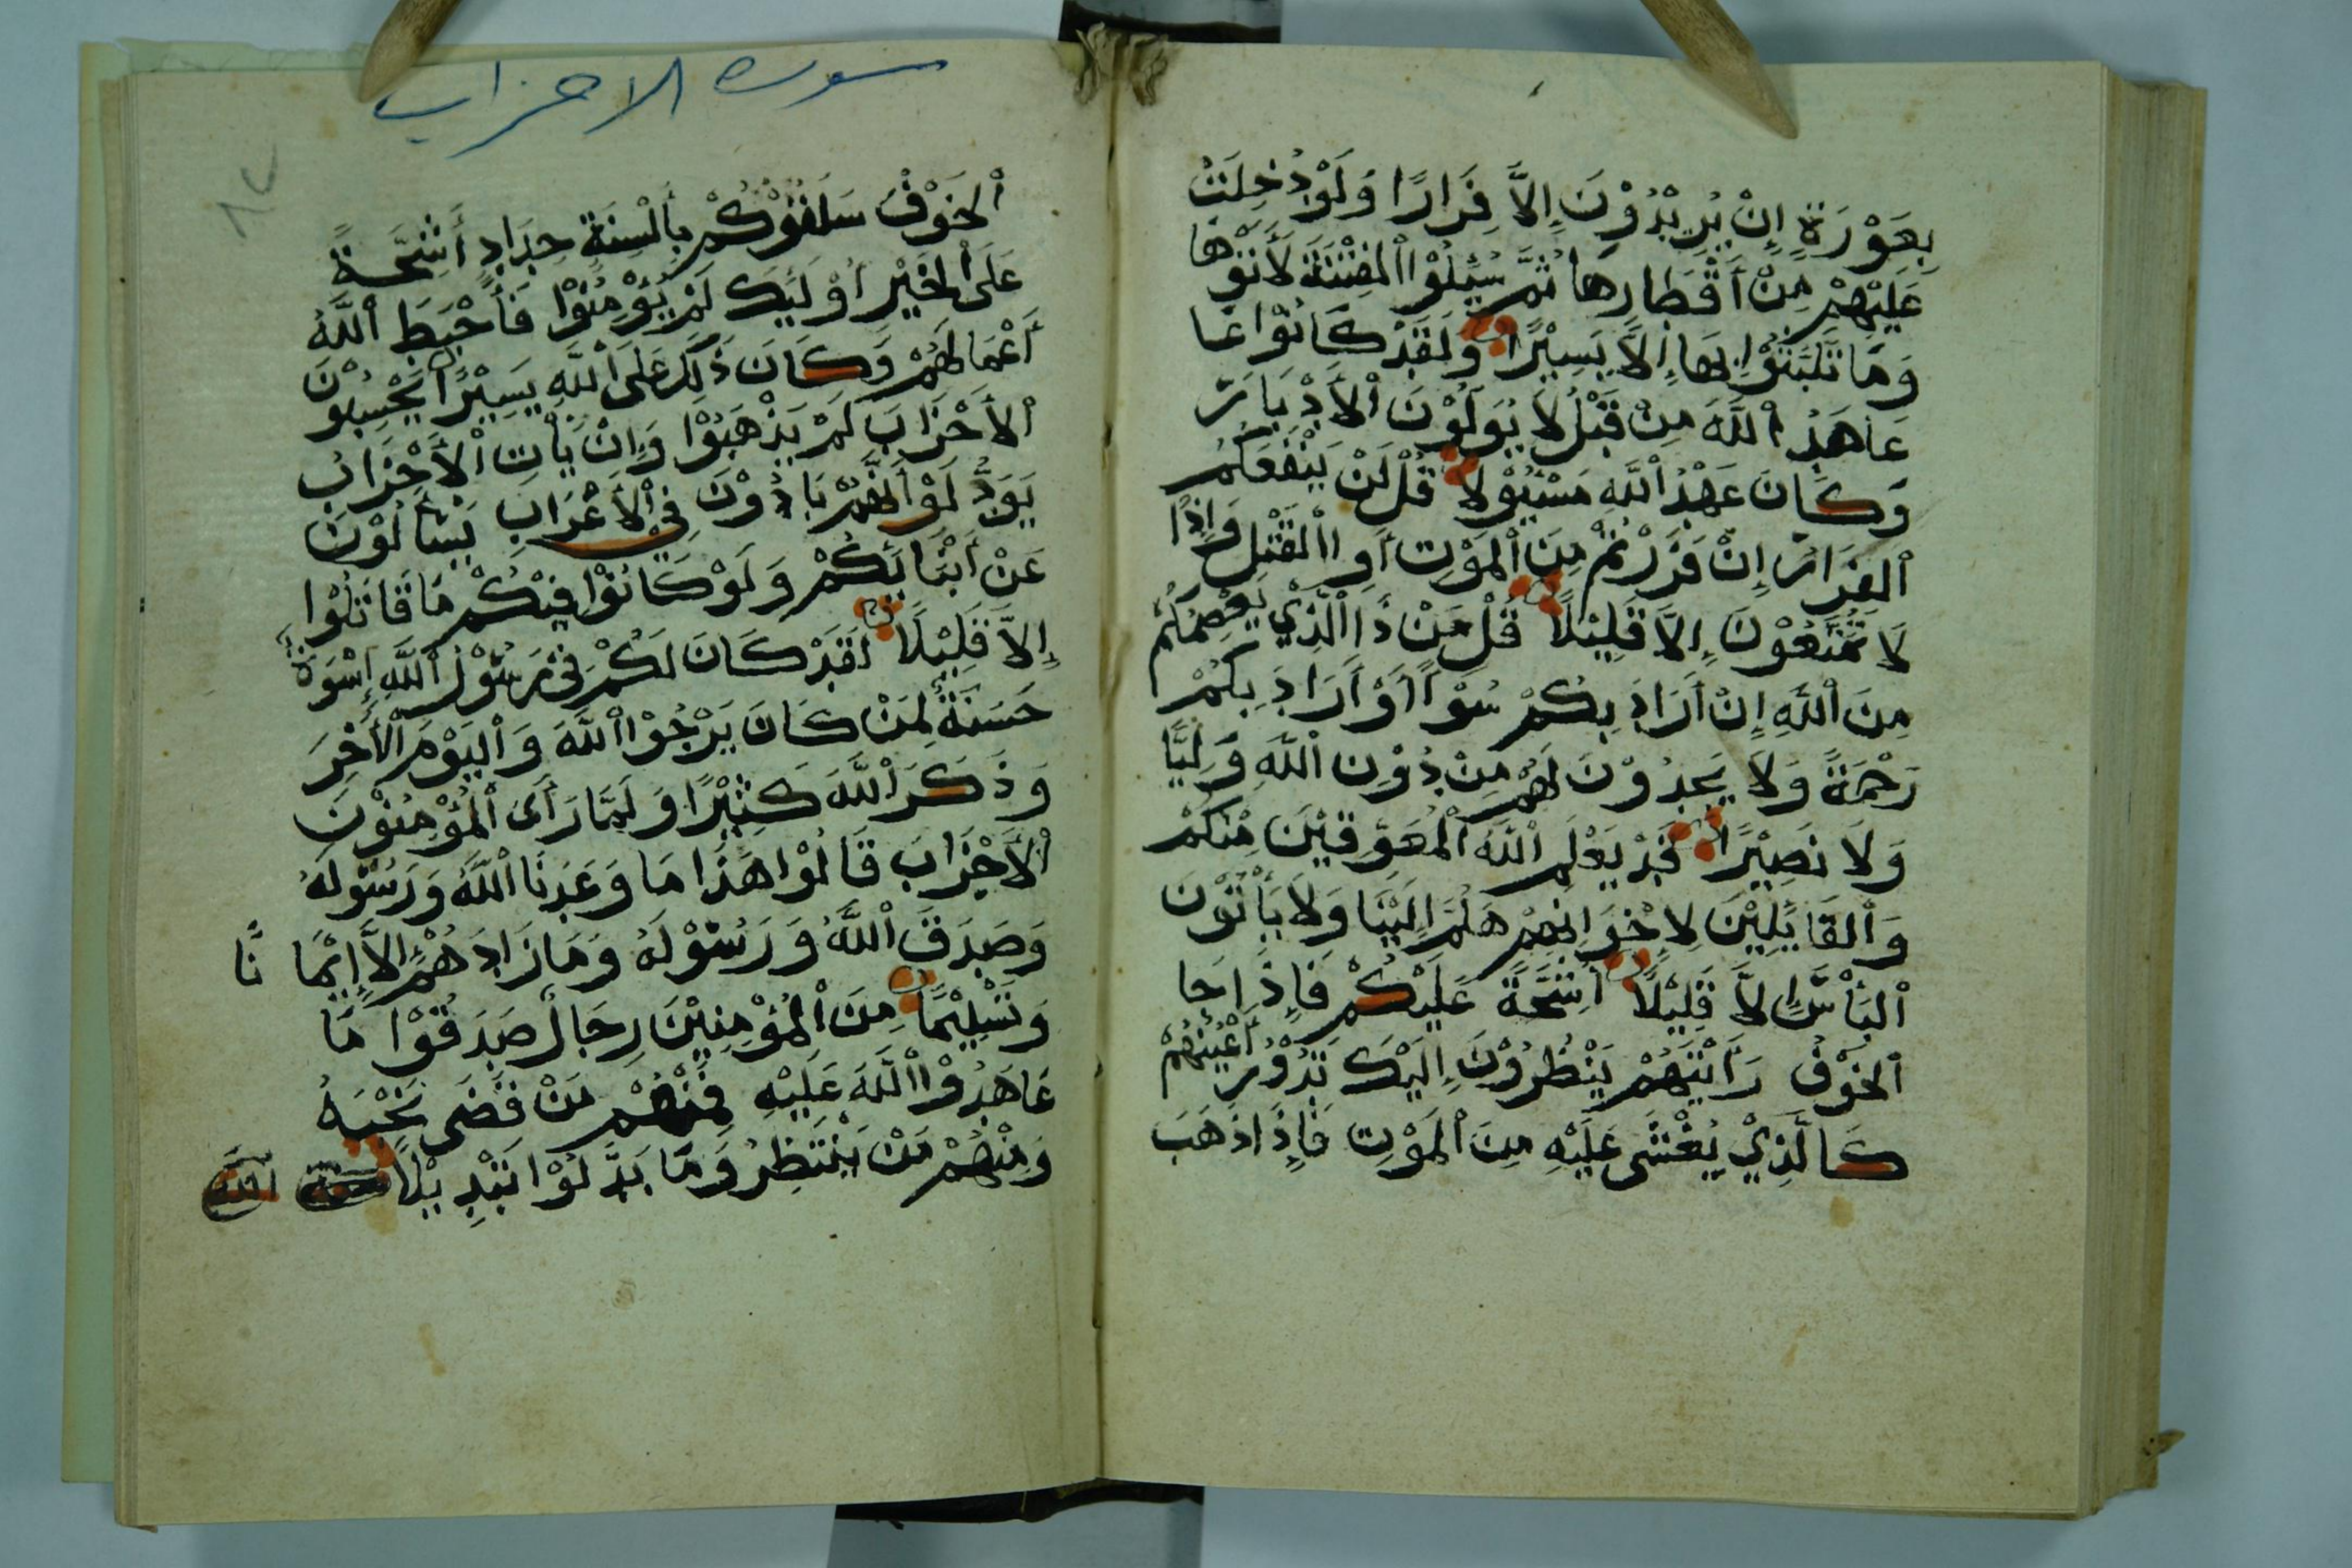 بِعَوْرَةٍ إِنْ يُرِيْدُوْنَ إِلاَّ فِرَارًا وَلَوْ دُخِلَتْ
عَلَيْهِمْ مِنْ أَقْطَارِهَا ثُمَّ سُئِلُوْا الْفِتْنَةَ لَأَتَوْهَا
وَمَا تَلَبَّثُوْا بِهَا إِلاَّ يَسِيْرًا وَلَقَدْ كَانُوْا عَا
عَاهَدُ اللَّهَ مِنْ قَبْلُ لاَ يُوَلُّوْنَ الْأَدْبَارَ
وَكَانَ عَهْدُ اللَّهِ مَسْئُوْلاً قُلْ لَنْ يَنْفَعَكُمُ
الْفِرَارُ إِنْ فَرَرْتُمْ مِنَ الْمَوْتِ أَوِ الْقَتْلِ وَإِذًا
لاَ تُمَتَّعُوْنَ إِلاَّ قَلِيْلاً قُلْ مَنْ ذَا الَّذِيْ يَعْصِمُكُمْ
مِنَ اللَّهِ إِنْ أَرَادَ بِكُمْ سُوْأً أَوْ أَرَادَ بِكُمْ
رَحْمَةً وَلاَ يَجِدُوْنَ لَهُمْ مِنْ دُوْنِ اللَّهِ وَلِيًّا
وَلاَ نَصِيْرًا قَدْ يَعْلَمُ اللَّهُ الْمُعَوِّقِيْنَ مِنْكُمْ
وَالْقَائِلِيْنَ لِإِخْوَانِهِمْ هَلُمَّ إِلَيْنَا وَلاَ يَأْتُوْنَ
الْبَأْسَ إِلاَّ قَلِيْلاً أَشِحَّةً عَلَيْكُمْ فَإِذَا جَا
الْخَوْفُ رَأَيْتَهُمْ يَنْظُرُوْنَ إِلَيْكَ تَدُوْرُ أَعْيُنُهُمْ
كَالَّذِيْ يُغْشَى عَلَيْهِ مِنَ الْمَوْتِ فَإِذَا ذَهَبَ
سورة الاحزاب
الْخَوْفُ سَلَقُوْكُمْ بِأَلْسِنَةٍ حِدَادٍ أَشِحَّةً
عَلَى الْخَيْرِ أُوْلَئِكَ لَمْ يُؤْمِنُوْا فَأَحْبَطَ اللَّهُ
أَعْمَالَهُمْ وَكَانَ ذَلِكَ عَلَى اللَّهِ يَسِيْرًا يَحْسِبُوْنَ
الْأَحْزَابَ لَمْ يَذْهَبُوْا وَإِنْ يَأْتِ الْأَحْزَابُ
يَوَدُّ لَوْ أَنَّهُمْ بَادُوْنَ فِي الْأَعْرَابِ يَسْأَلُوْنَ
عَنْ أَنْبَائِكُمْ وَلَوْ كَانُوْا فِيْكُمْ مَا قَاتَلُوْا
إِلاَّ قَلِيْلاً لَقَدْ كَانَ لَكُمْ فِيْ رَسُوْلِ اللَّهِ إِسْوَةٌ
حَسَنَةٌ لِمَنْ كَانَ يَرْجُوْا اللَّهَ وَالْيَوْمَ الْأَخِرَ
وَذَكَرَ اللَّهَ كَثِيْرًا وَلَمَّا رَأَى الْمُؤْمِنُوْنَ
الْأَحْزَابَ قَالُوْا هَذَا مَا وَعَدَنَا اللَّهُ وَرَسُوْلُهُ
وَصَدَقَ اللَّهُ وَرَسُوْلُهُ وَمَا زَادَهُمْ إِلاَّ إِيْمَانًا
وَتَسْلِيْمًا مِنَ الْمُؤْمِنِيْنَ رِجَالٌ صَدَقُوْا مَا
عَاهَدُوْا اللَّهَ عَلَيْهِ فَمِنْهُمْ مَنْ قَضَى نَحْبَهُ
وَمِنْهُمْ مَنْ يَنْتَظِرُ وَمَا بَدَّلُوْا تَبْدِيْلاً